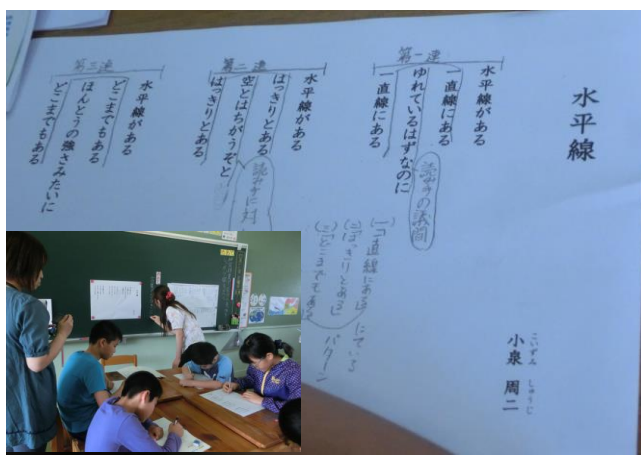 水平線
こいずみ しゅうじ
小泉 周二
第一連
水平線がある
一直線にある
ゆれているはずなのに
一直線にある
読み手の疑問
第二連
水平線がある
はっきりとある
空とはちがうぞと
はっきりとある
読み手に対
第三連
水平線がある
どこまでもある
ほんとうの強さみたいに
どこまでもある
(一)「一直線にある」
(二)「はっきりとある」
(三)「どこまでもある
にている
パターン